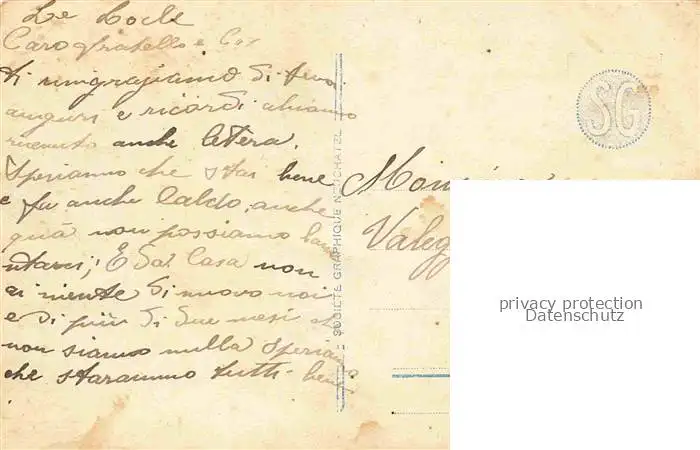 Le Locle
Caro fratello e Cog
ti ringraziamo di tuoi
auguri e ricordi abiamo
ricevuto anche letera.
Speriamo che stai bene
e fa anche Caldo, anche
quà non possiamo lame
ntarci; E Dai Casa non
ai niente di nuovo noi
e di più di due mesi che
non siamo nulla Speriamo
che staranno tutti bene
SOCIÉTÉ GRAPHIQUE NEUCHATEL
SG
Valeg
privacy protection
Datenschutz